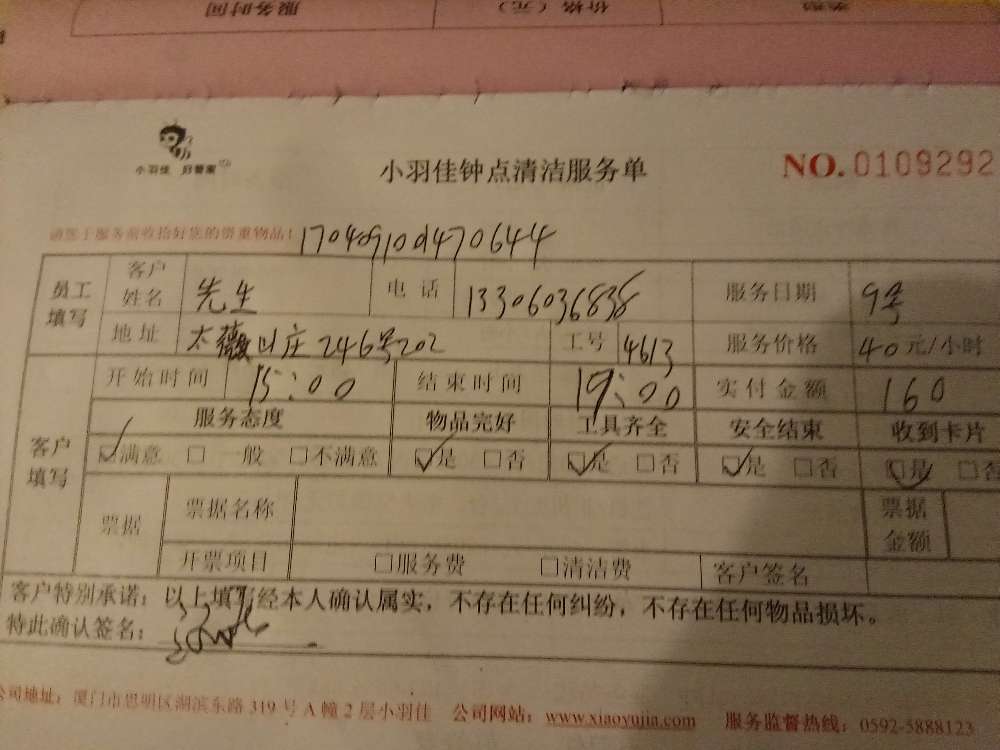 服务时间 价格（元） 类型
小羽佳 好管家
小羽佳钟点清洁服务单 NO. 0109292
请您于服务前收拾好您的贵重物品！ 170409109470644
员工填写 客户姓名 先生 电话 13306036838 服务日期 9号
地址 太薇山庄246号202 工号 4613 服务价格 40元/小时
客户填写 开始时间 15:00 结束时间 19:00 实付金额 160
服务态度 物品完好 工具齐全 安全结束 收到卡片
☑满意 □一般 □不满意 ☑是 □否 ☑是 □否 ☑是 □否 ☑是 □否
票据 票据名称 票据金额
开票项目 □服务费 □清洁费 客户签名
客户特别承诺：以上填写经本人确认属实，不存在任何纠纷，不存在任何物品损坏。
特此确认签名：
公司地址：厦门市思明区湖滨东路319号A幢2层小羽佳 公司网站：www.xiaoyujia.com 服务监督热线：0592-5888123